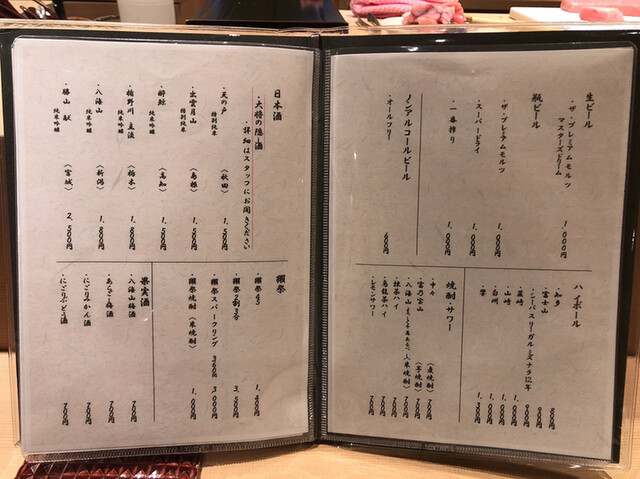 生ビール
・ザ・プレミアムモルツ
マスターズドリーム 1,000円
瓶ビール
・ザ・プレミアムモルツ 1,000円
・スーパードライ 1,000円
・一番搾り 1,000円
ノンアルコールビール
・オールフリー 600円
ハイボール
・知多
・富士山
・シーバスリーガルミズナラ12年
・山崎
・白州
・響
焼酎・サワー
・中々 (麦焼酎) 700円
・富乃宝山 (芋焼酎) 700円
・八海山 (米焼酎) 700円
・抹茶ハイ 700円
・烏龍茶ハイ 700円
・レモンサワー 700円
日本酒
・大将の隠し酒
・詳細はスタッフにお聞きください
・天の戸 特別純米 (秋田) 1,500円
・出雲月山 特別純米 (島根) 1,500円
・酔鯨 純米吟醸 (高知) 1,500円
・楯野川 主流 純米吟醸 (栃木) 1,800円
・八海山 純米吟醸 (新潟) 1,800円
・勝山 献 純米吟醸 (宮城) 2,500円
獺祭
・獺祭45 1,400円
・獺祭2割3分 3,500円
・獺祭スパークリング 360ml 3,000円
・獺祭焼酎 (米焼酎) 1,000円
果実酒
・八海山梅酒 700円
・あらごし梅酒 700円
・にごりみかん酒 700円
・にごりぶどう酒 700円